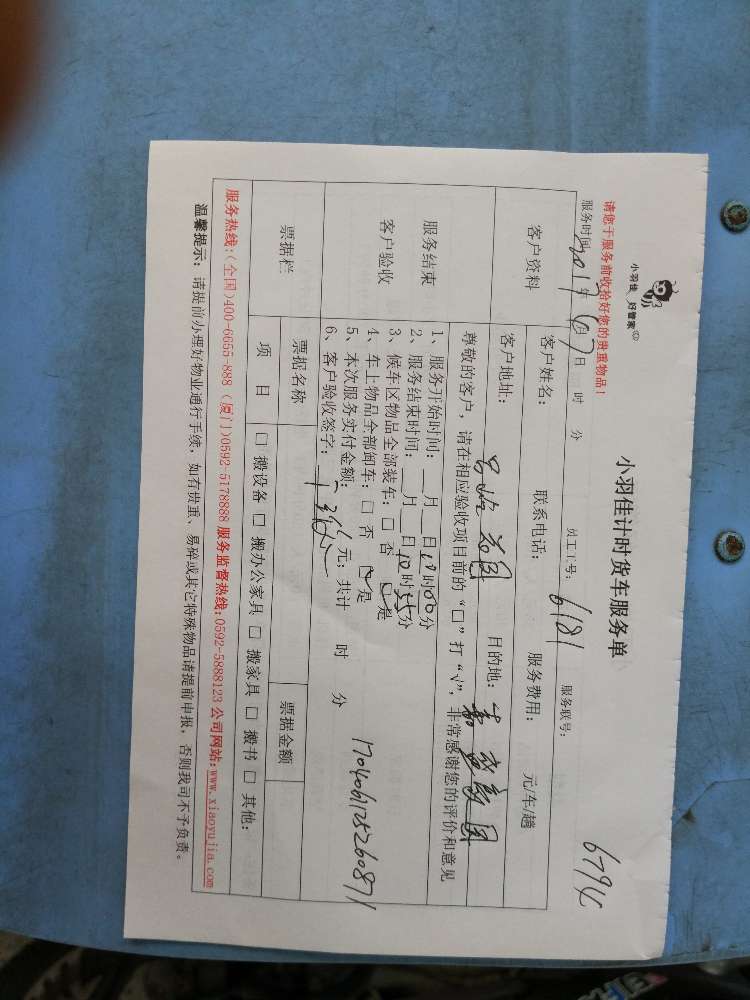 小羽佳 好管家
小羽佳计时货车服务单
6794
请您于服务前收拾好您的贵重物品！
服务时间: 年 月 日 时 分 员工工号: 6181 服务联号:
客户资料
客户姓名: 联系电话: 服务费用: 元/车/趟
客户地址: 目的地:
尊敬的客户，请在相应验收项目前的“口”打“√”，非常感谢您的评价和意见
服务结束
客户验收
1、服务开始时间: 月 日 时00分
2、服务结束时间: 月 日10时55分
3、候车区物品全部装车: □ 否 □ 是
4、车上物品全部卸车: □ 否 □ 是
5、本次服务实付金额: 元; 共计 时 分
6、客户验收签字:
17040611252608 71
票据栏
票据名称 票据金额
项 目 □ 搬设备 □ 搬办公家具 □ 搬家具 □ 搬书 □ 其他:
服务热线:(全国)400-6655-888 (厦门)0592-5178888 服务监督热线:0592-5888123 公司网站:www.xiaoyujia.com
温馨提示: 请提前办理好物业通行手续，如有贵重、易碎或其它特殊物品请提前申报，否则我司不予负责。